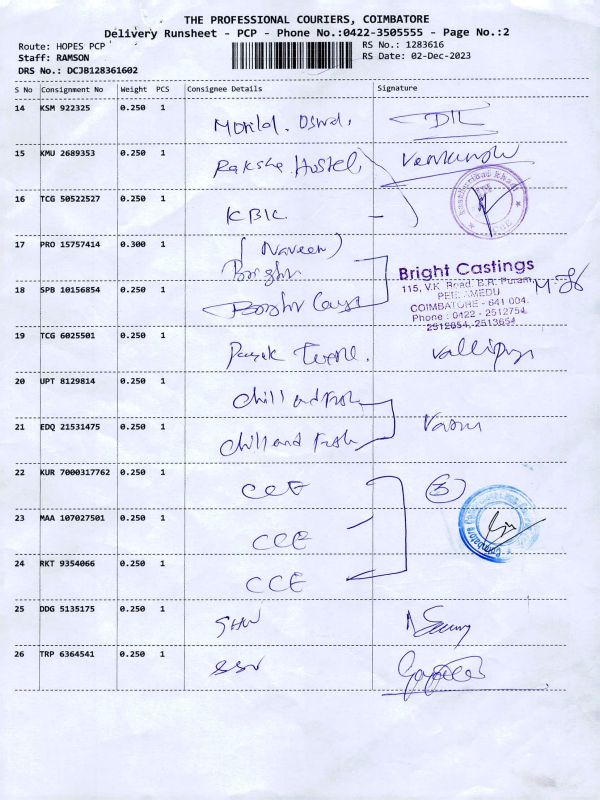 THE PROFESSIONAL COURIERS, COIMBATORE
Delivery Runsheet - PCP - Phone No.:0422-3505555 - Page No.:2
Route: HOPES PCP
RS No.: 1283616
Staff: RAMSON
RS Date: 02-Dec-2023
DRS No.: DCJB128361602
S No Consignment No Weight PCS Consignee Details Signature
14 KSM 922325 0.250 1
15 KMU 2689353 0.250 1 Raksha Hostel
16 TCG 50522527 0.250 1 KBIL
17 PRO 15757414 0.300 1 (Naveen)
18 SPB 10156854 0.250 1
Bright Castings
115, V.K. Road, B.R. Puram,
PEELAMEDU
COIMBATORE - 641 004.
Phone : 0422 - 2512754
2512654, 2513654
19 TCG 6025501 0.250 1
20 UPT 8129814 0.250 1 Chill and Fish
21 EDQ 21531475 0.250 1 Chill and Fish
22 KUR 7000317762 0.250 1 CCE
23 MAA 107027501 0.250 1 CCE
24 RKT 9354066 0.250 1 CCE
25 DDG 5135175 0.250 1
26 TRP 6364541 0.250 1